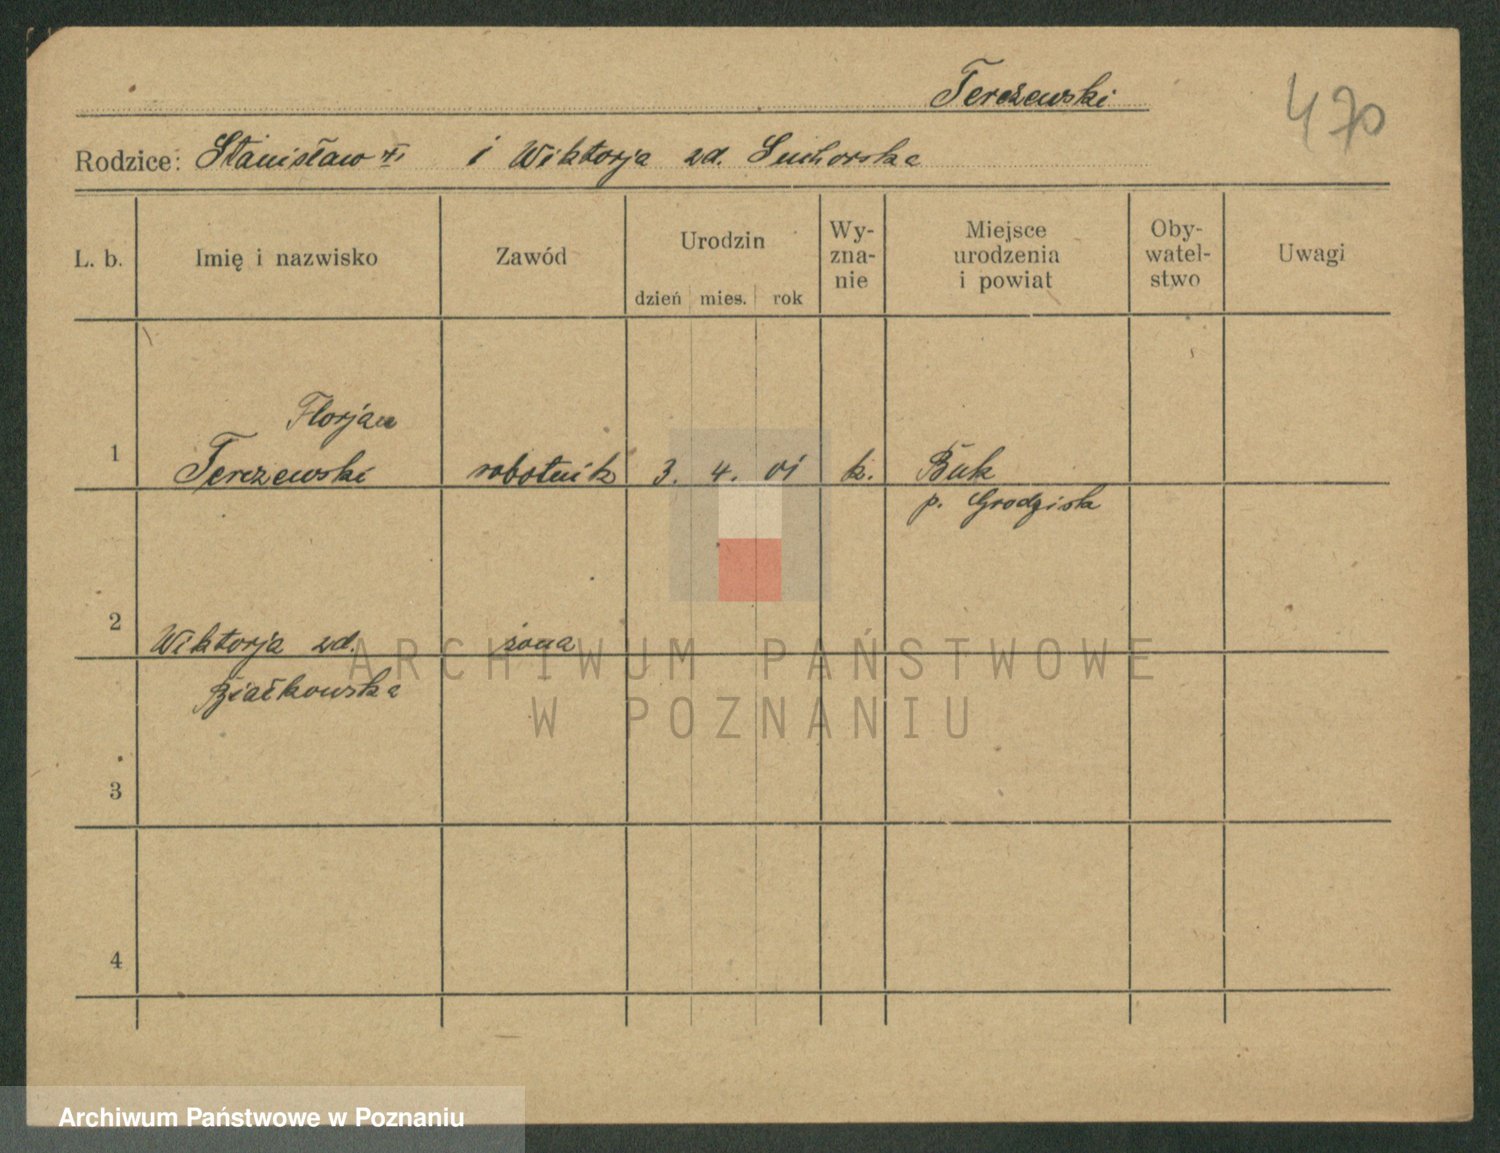 Tereżewski
470
Rodzice: Stanisław i Wiktorja zd. Suchorska
L. b. Imię i nazwisko Zawód Urodzin Wy-zna-nie Miejsce urodzenia i powiat Oby-watel-stwo Uwagi
dzień mies. rok
Florjan
1 Terezewski robotnik 3. 4. 01 k. Buk
p. Grodzisk
2 Wiktorja zd. żona
Białkowska
3
4
ARCHIWUM PAŃSTWOWE
W POZNANIU
Archiwum Państwowe w Poznaniu